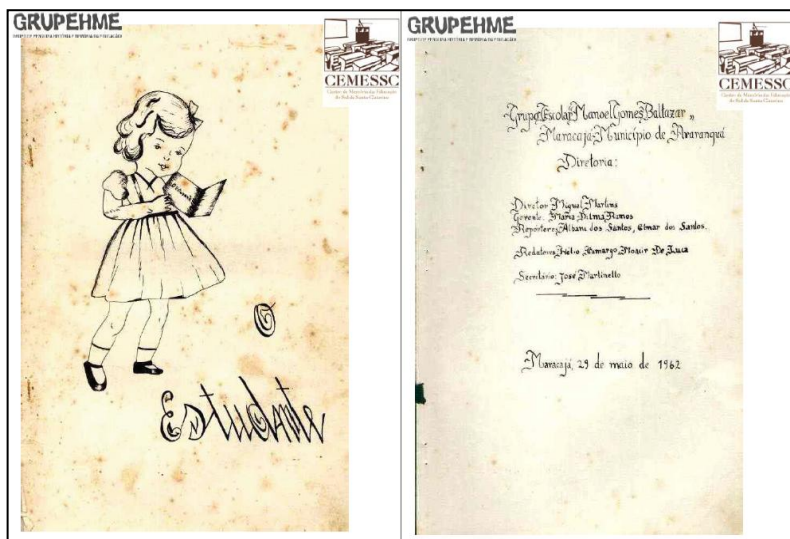 GRUPEHME
CEMESSC
O
Estudante
GRUPEHME
CEMESSC
Grupo Escolar "Manoel Gomes Baltazar"
Maracajá-Município de Araranguá
Diretoria:
Diretor Miguel Martins
Gerente: Maria Dilma Ramos
Repórteres, Albani dos Santos, Elmar dos Santos.
Redatores, Hélio Camargo, Moacir De Luca
Secretário: José Martinello
Maracajá, 29 de maio de 1962